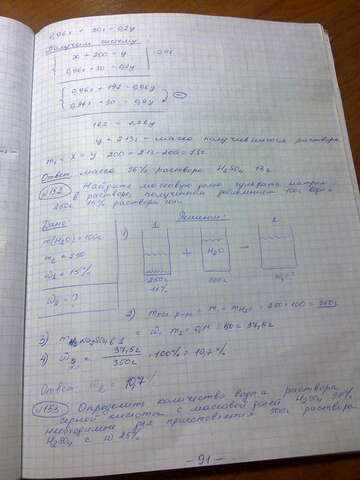 0,96x + 30 = 0,2y
Получим систему
x + 200 = y
0,96x + 30 = 0,2y
0,96x + 192 = 0,96y
0,96x + 30 = 0,2y
y = 213г – масса получившегося раствора
m₁ = x = y - 200 = 213 - 200 = 13г
Ответ масса 96% раствора H₂SO₄ 13г
№132 Найдите массовую долю нитрата натрия
в растворе, полученном добавлением 100г воды к
250г 15% раствора
Дано: Решение:
m(H₂O) = 100г 1) 1 2
m₁ = 250 + H₂O =
ω₁ = 15% 250г 100г m₂ = ?
15%
ω₂ = ? 2) m₁ + mH₂O = 250 + 100 = 350г
3) = 37,5г
4) ω₂ = 37,5г / 350г · 100% = 10,7%
Ответ ω₂ = 10,7%
№133 Определите количество воды и раствора
серной кислоты с массовой долей H₂SO₄
необходимое для приготовления 500г раствора
H₂SO₄ с ω 25%
- 91 -